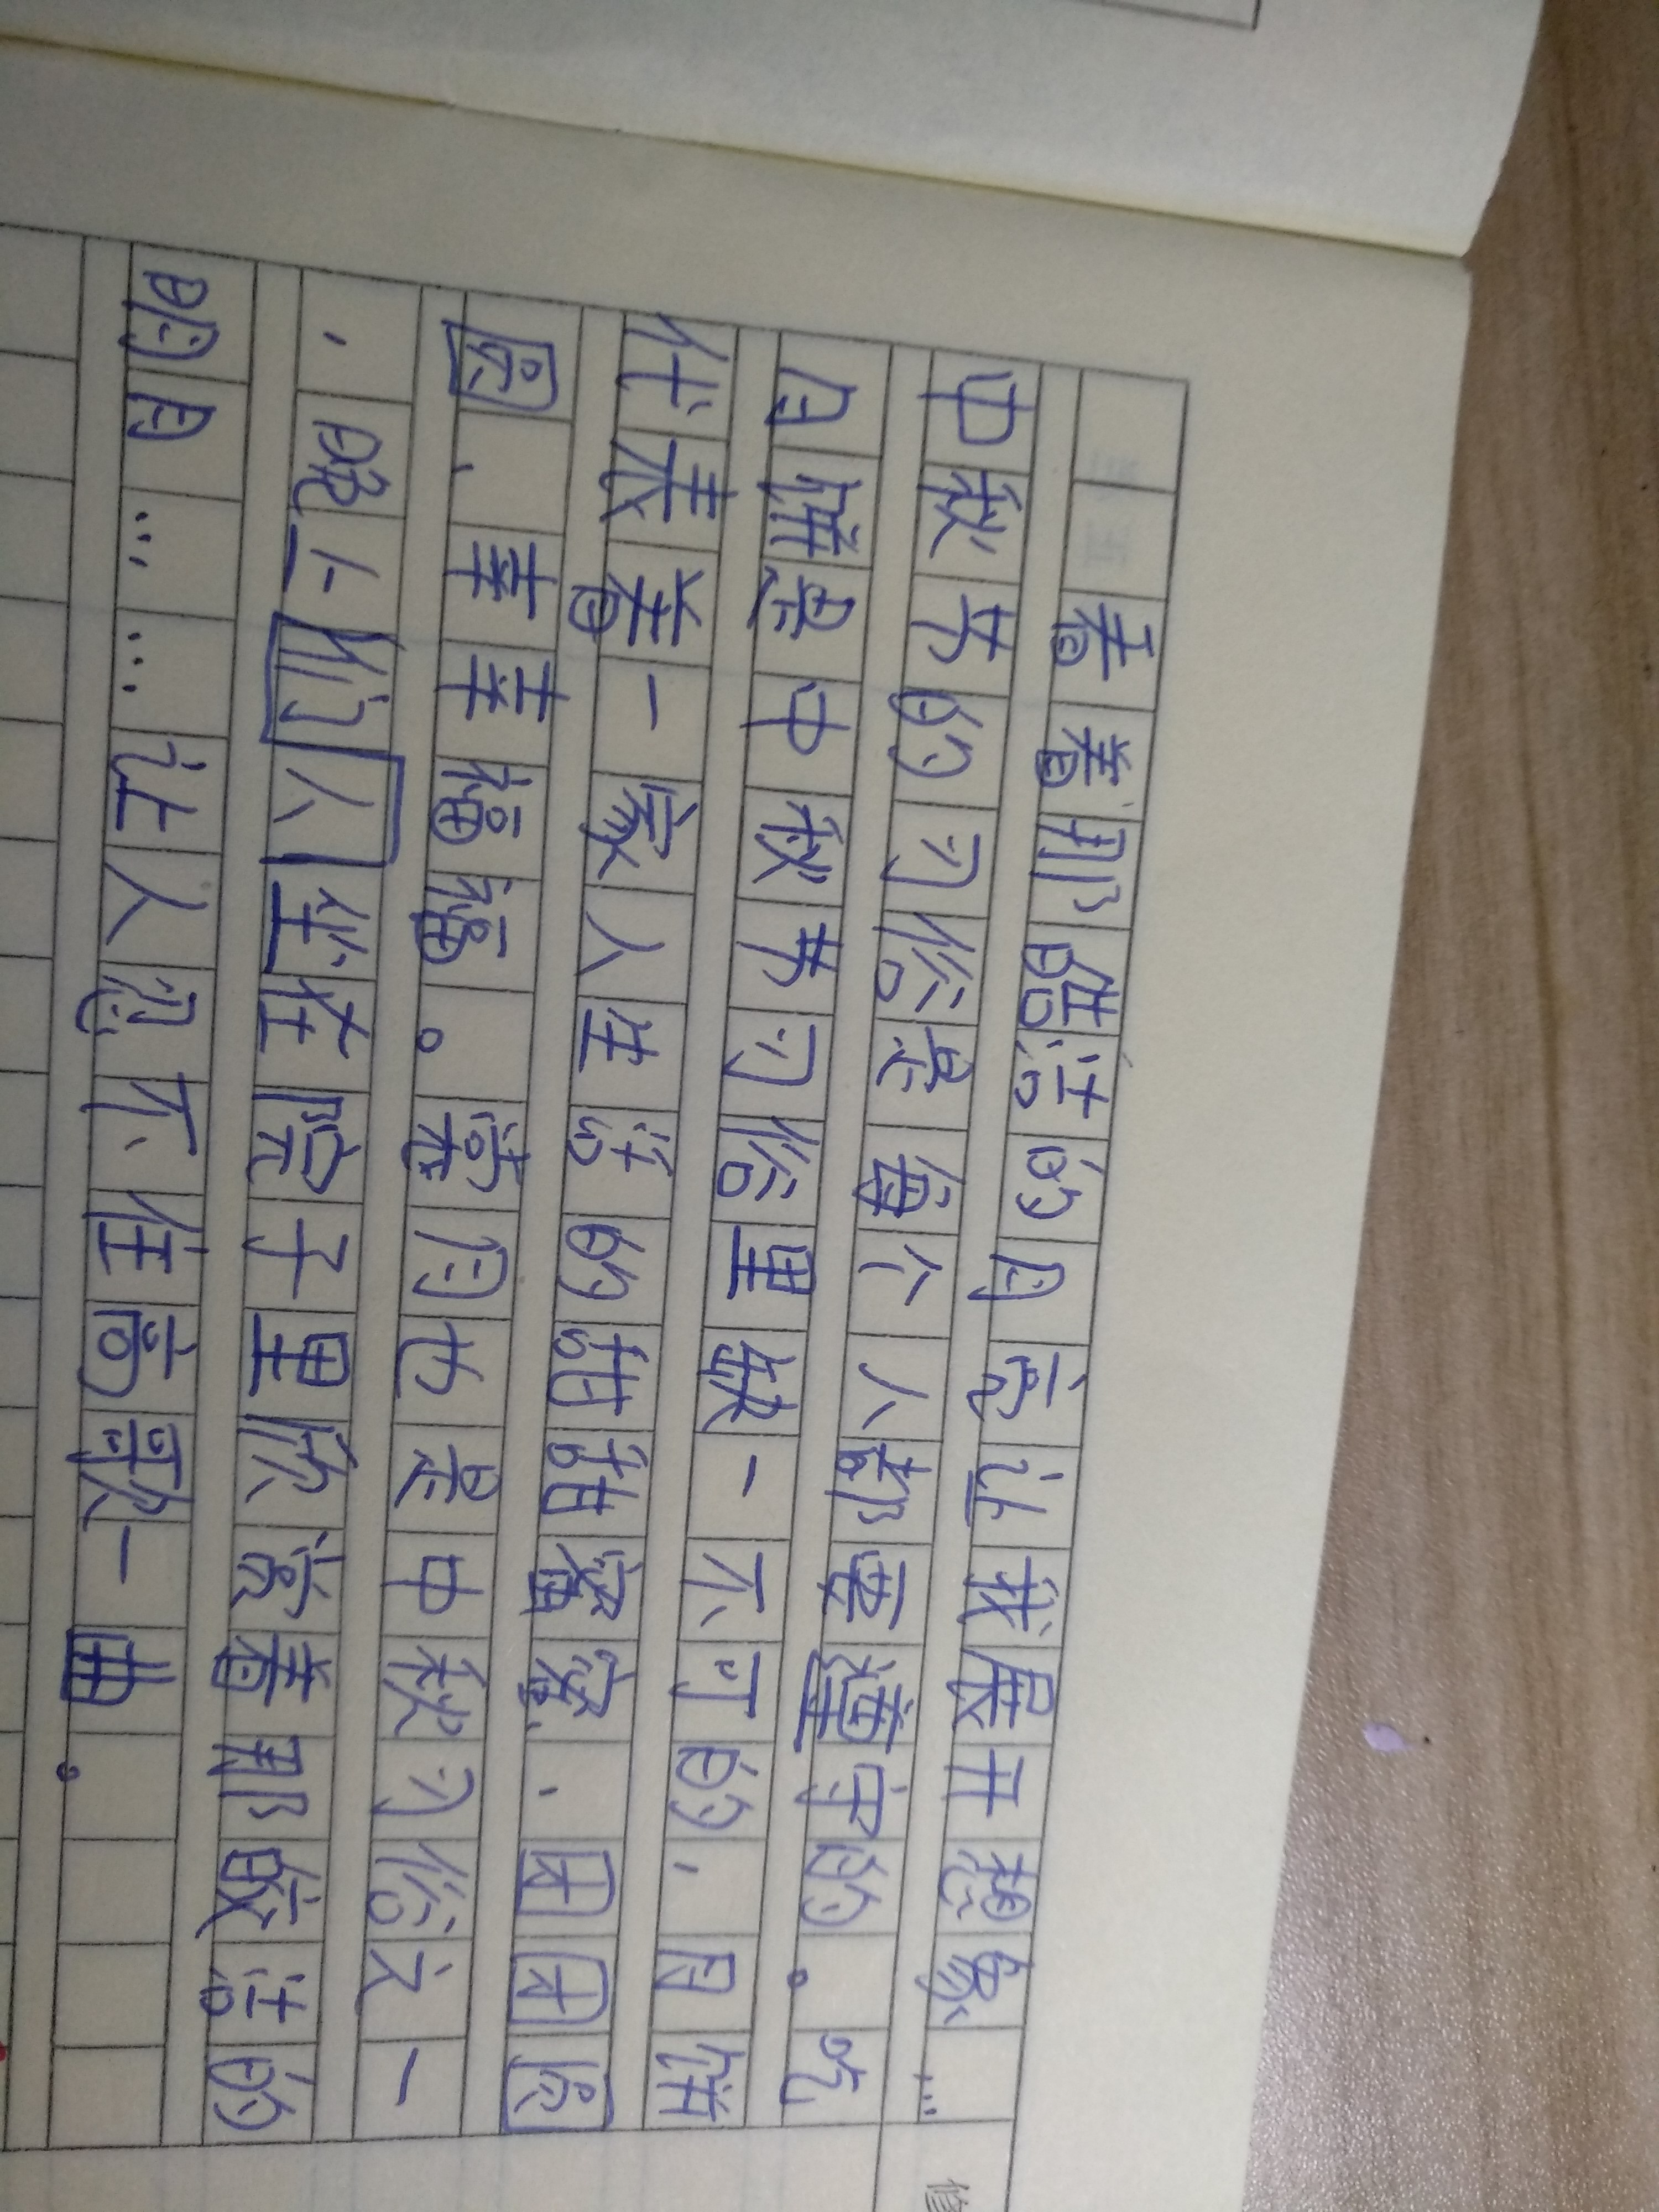 看着那皓洁的月亮让我展开想象…
中秋节的习俗是每个人都要遵守的。吃
月饼是中秋节习俗里缺一不可的，月饼
代表着一家人生活的甜甜蜜蜜、团团圆
圆、幸幸福福。赏月也是中秋习俗之一
，晚上们人坐在院子里欣赏着那皎洁的
明月……让人忍不住高歌一曲。
修